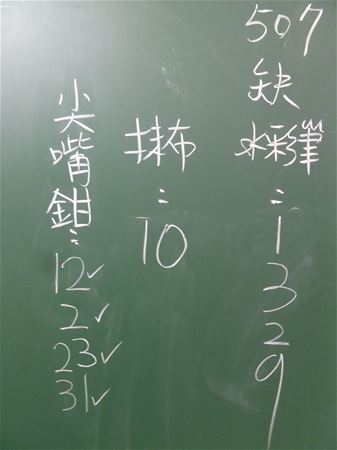 507缺水彩筆：1 3 2 9
抹布：10
尖嘴鉗：12✓ 2✓ 23✓ 31✓